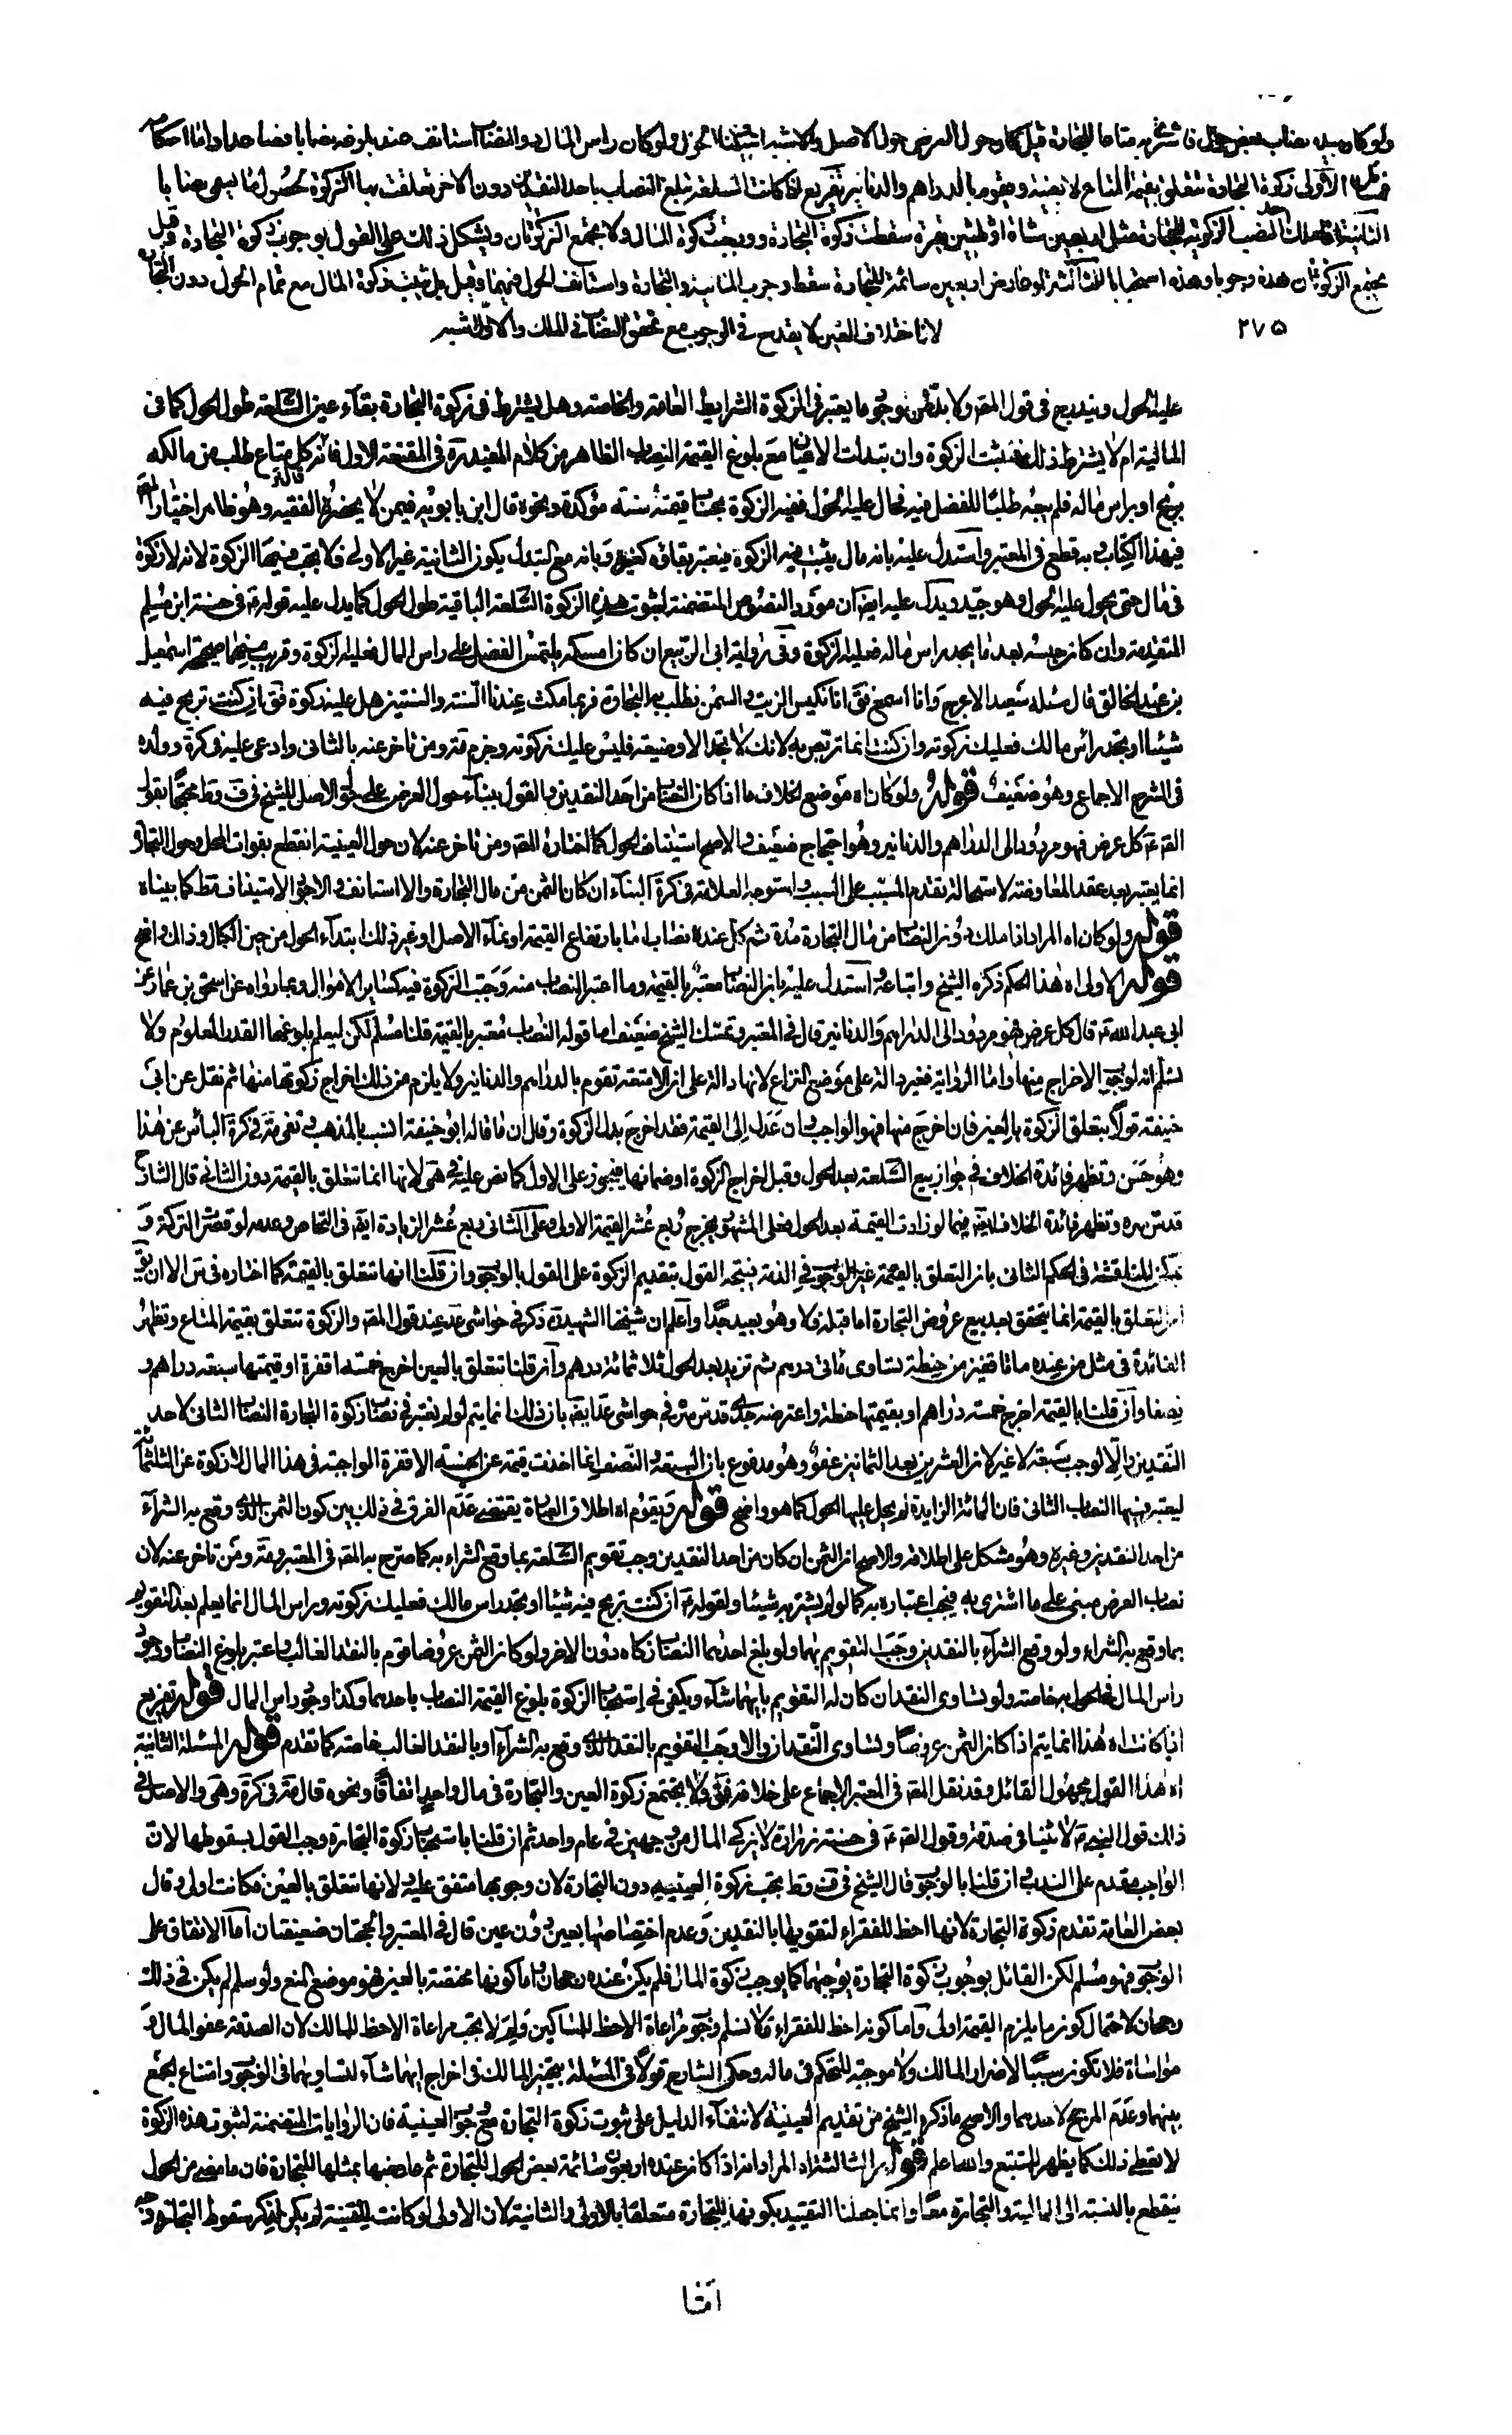 ولو كان بيده نصاب بعض حول فاشترى به متاعا للتجارة قيل كان حول العرض حول الاصل والاشبه استيناف الحول ولو كان راس المال دون النصاب استانف عند بلوغه نصابا فصاعدا واما احكامه
فمسائل الاولى زكوة التجارة تتعلق بقيمة المتاع لا بعينه ويقوم بالدراهم والدنانير تفريع اذا كانت السلعة تبلغ النصاب باحد النقدين دون الاخر تعلقت بها الزكوة لحصول ما يسمى نصابا
الثانية اذا ملك احد النصب الزكوية للتجارة مثل اربعين شاة او ثلثين بقرة سقطت زكوة التجارة ووجبت زكوة المال ولا يجتمع الزكوتان ويشكل ذلك على القول بوجوب زكوة التجارة وقيل
يجتمع الزكوتان هذه وجوبا وهذه استحبابا الثالثة لو عاوض اربعين سائمة للتجارة سقط وجوب المالية والتجارة واستانف الحول فيهما وقيل بل يثبت زكوة المال مع تمام الحول دون التجارة
لان اختلاف العين لا يقدح في الوجوب مع تحقق النصاب في الملك والاول اشبه
٢٧٥
عليه الحول ويندرج في قول المص ولا بد من وجود ما يعتبر في الزكوة الشرايط العامة والخاصة وهل يشترط في زكوة التجارة بقاء عين السلعة طول الحول كما في
المالية ام لا يشترط ذلك فتثبت الزكوة وان تبدلت الاعيان مع بلوغ القيمة النصاب الظاهر من كلام المفيد ره في المقنعة الاول فانه قال كل متاع طلب من مالكه
بربح او براس ماله فلم يبعه طلبا للفضل فيه فحال عليه الحول ففيه الزكوة بحساب قيمته سنة مؤكدة ونحوه قال ابن بابويه فيمن لا يحضره الفقيه وهو ظاهر اختيار المص
في هذا الكتاب وبه قطع في المعتبر واستدل عليه بانه مال يثبت فيه الزكوة فيعتبر بقاؤه كغيره وبانه مع التبدل يكون الثانية غير الاولى فلا يجب فيها الزكوة لانه لا زكوة
في مال حتى يحول عليه الحول وهو جيد ويدل عليه ايضا ان مورد النصوص المتضمنة لثبوت هذه الزكوة السلعة الباقية طول الحول كما يدل عليه قوله ع في حسنة ابن مسلم
المتقدمة وان كان حبسه بعد ما يجد راس ماله فعليه الزكوة وفي رواية ابي الربيع ان كان امسكه يلتمس الفضل على راس المال فعليه الزكوة وقريب منهما صحيحة اسمعيل
بن عبد الخالق قال سئله سعيد الاعرج وانا اسمع فق انا نكبس الزيت والسمن نطلب به التجارة فربما مكث عندنا السنة والسنتين هل عليه زكوة فق ان كنت تربح فيه
شيئا او تجد راس مالك فعليك زكوته وان كنت انما تربص به لانك لا تجد الا وضيعة فليس عليك زكوته وجزم مة ومن تاخر عنه بالثاني وادعى عليه في كرة وولده
في الشرح الاجماع وهو ضعيف قوله ولو كان اه موضع الخلاف ما اذا كان النصاب من احد النقدين والقول ببناء حول العرض على حول الاصل للشيخ في ف وط محتجا بقول
الص ع كل عرض فهو مردود الى الدراهم والدنانير وهو احتجاج ضعيف والاصح استيناف الحول كما اختاره المص ومن تاخر عنه لان حول العينية انقطع بفوات المحل وحول التجارة
انما يعتبر بعد عقد المعاوضة لاستحالة تقدم المسبب على السبب واستوجه العلامة في كرة البناء ان كان الثمن من مال التجارة والا استانف والاجود الاستيناف مط كما بيناه
قوله ولو كان اه المراد اذا ملك دون النصاب من مال التجارة مدة ثم كمل عنده نصاب اما بارتفاع القيمة او نماء الاصل وغير ذلك ابتداء الحول من حين الكمال وذلك واضح
قوله الاولى اه هذا الحكم ذكره الشيخ واتباعه واستدل عليه بان النصاب معتبر بالقيمة وما اعتبر النصاب منه وجبت الزكوة فيه كساير الاموال وبما رواه عن اسحق بن عمار عن
ابي عبد الله ع قال كل عرض فهو مردود الى الدراهم والدنانير قال في المعتبر وتمسك الشيخ ضعيف اما قوله النصاب معتبر بالقيمة قلنا مسلم لكن ليعلم بلوغها القدر المعلوم ولا
نسلم انه لوجوب الاخراج منها واما الرواية فغير دالة على موضع النزاع لانها دالة على ان الامتعة تقوم بالدراهم والدنانير ولا يلزم من ذلك اخراج زكوتها منها ثم نقل عن ابي
حنيفة قولا بتعلق الزكوة بالعين فان اخرج منها فهو الواجب وان عدل الى القيمة فقد اخرج بدل الزكوة وقال ان ما قاله ابو حنيفة انسب بالمذهب ونفى مة في كرة الباس عن هذا
وهو حسن وتظهر فائدة الخلاف في جواز بيع السلعة بعد الحول وقبل اخراج الزكوة او ضمانها فيجوز على الاول كما نص عليه في هى لانها انما تتعلق بالقيمة دون الثاني قال الشارح
قدس سره وتظهر فائدة الخلاف ايضا فيما لو زادت القيمة بعد الحول فعلى المشهور يخرج ربع عشر القيمة الاولى وعلى الثاني ربع عشر الزيادة ايضا وفي التحاص وعدمه لو قصر التركة و
يمكن المناقشة في الحكم الثاني بان التعلق بالقيمة غير الوجوب في الذمة فيتجه القول بتقديم الزكوة على القول بالوجوب وان قلنا انها تتعلق بالقيمة كما اختاره في س الا ان يق
ان التعلق بالقيمة انما يتحقق بعد بيع عروض التجارة اما قبله فلا وهو بعيد جدا واعلم ان شيخنا الشهيد ره ذكر في حواشى عد عند قول المص والزكوة تتعلق بقيمة المتاع وتظهر
الفائدة في مثل من عنده مائتا قفيز من حنطة تساوى مائتى درهم ثم تزيد بعد الحول ثلاثمائة درهم وان قلنا تتعلق بالعين اخرج خمسة اقفزة او قيمتها سبعة دراهم و
نصفا وان قلنا بالقيمة اخرج خمسة دراهم او بقيمتها حنطة واعترضه جدى قدس سره في حواشى عد ايضا بان ذلك انما يتم لو لم يعتبر في نصاب زكوة التجارة النصاب الثاني لاحد
النقدين والا لوجب سبعة لا غير لان العشرين بعد الثمانين عفو وهو مدفوع بان السبعة والنصف انما اخذت قيمة عن الخمسة الاقفزة الواجبة في هذا المال لا زكوة عن الثلثمائة
ليعتبر فيها النصاب الثاني فان المائة الزايدة لم يحل عليها الحول كما هو واضح قوله ويقوم اه اطلاق العبارة يقتضى عدم الفرق في ذلك بين كون الثمن الذى وقع به الشراء
من احد النقدين وغيره وهو مشكل على اطلاقه والاصح ان الثمن ان كان من احد النقدين وجب تقويم السلعة بما وقع الشراء به كما صرح به المص في المعتبر ومة ومن تاخر عنه لان
نصاب العرض مبنى على ما اشترى به فيجب اعتباره به كما لو لم يشتر به شيئا ولقوله ع ان كنت تربح فيه شيئا او تجد راس مالك فعليك زكوته وراس المال انما يعلم بعد التقويم
بما وقع به الشراء ولو وقع الشراء بالنقدين وجب التقويم بهما ولو بلغ احدهما النصاب زكاه دون الاخر ولو كان الثمن عروضا قوم بالنقد الغالب واعتبر بلوغ النصاب ووجود
راس المال في الحول به خاصة ولو تساوى النقدان كان له التقويم بايهما شاء ويكفى في استحباب الزكوة بلوغ القيمة النصاب باحدهما وكذا وجود راس المال قوله تفريع
اذا كانت اه هذا انما يتم اذا كان الثمن عروضا وتساوى النقدان والا وجب التقويم بالنقد الذى وقع به الشراء او بالنقد الغالب خاصة كما تقدم قوله المسئلة الثانية
اه هذا القول مجهول القائل وقد نقل المص في المعتبر الاجماع على خلافه فق ولا يجتمع زكوة العين والتجارة في مال واحد اتفاقا ونحوه قال مة في كرة وهى والاصل في
ذلك قول النبي ص لا ثنيا في صدقة وقول الص ع في حسنة زرارة لا يزكى المال من وجهين في عام واحد ثم ان قلنا باستحباب زكوة التجارة وجب القول بسقوطها لان
الواجب مقدم على الندب وان قلنا بالوجوب قال الشيخ في ف وط يجب زكوة العينية دون التجارة لان وجوبها متفق عليه ولانها تتعلق بالعين فكانت اولى وقال
بعض العامة تقدم زكوة التجارة لانها احظ للفقراء لتقويمها بالنقدين وعدم اختصاصها بعين دون عين قال في المعتبر والحجتان ضعيفتان اما الاتفاق على
الوجوب فهو مسلم لكن القائل بوجوب زكوة التجارة يوجبها كما يوجب زكوة المال فلم يكن عنده رجحان واما كونها مختصة بالعين فهو موضع المنع ولو سلم لم يكن في ذلك
رجحان لاحتمال كون ما يلزم القيمة اولى واما كونه احظ للفقراء فلا نسلم وجوب مراعاة الاحظ للمساكين ولم لا يجب مراعاة الاحظ للمالك لان الصدقة عفو المال و
مواساة فلا تكون سببا لاضرار المالك ولا موجبة للتحكم في ماله وحكى الشارح قولا في المسئلة بتخير المالك في اخراج ايهما شاء لتساويهما في الوجوب وامتناع الجمع
بينهما وعدم المرجح لاحدهما والاصح ما ذكره الشيخ من تقديم العينية لانتفاء الدليل على ثبوت زكوة التجارة مع وجوب العينية فان الروايات المتضمنة لثبوت هذه الزكوة
لا تعطى ذلك كما يظهر للمتتبع والله اعلم قوله الثالثة اه المراد انه اذا كان عنده اربعون سائمة بعض الحول للتجارة ثم عاوضها بمثلها للتجارة فان ما مضى من الحول
ينقطع بالنسبة الى المالية والتجارة معا وانما جعلنا التقييد بكونها للتجارة متعلقا بالاولى والثانية لان الاولى لو كانت للقنية لم يكن لذكر سقوط التجارة وجه
اتفا